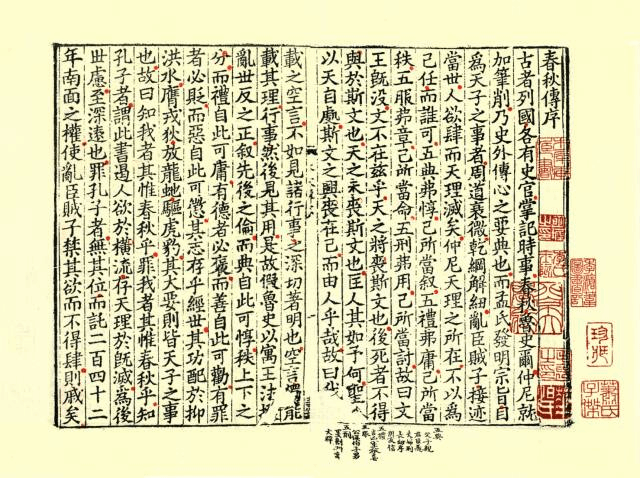 春秋傳序
古者列國各有史官掌記時事春秋魯史爾仲尼就
加筆削乃史外傳心之要典也而孟氏發明宗旨目
為天子之事者周道衰微乾綱解紐亂臣賊子接迹
當世人欲肆而天理滅矣仲尼天理之所在不以為
己任而誰可五典弗惇己所當敘五禮弗庸己所當
秩五服弗章己所當命五刑弗用己所當討故曰文
王既没文不在兹乎天之將喪斯文也後死者不得
與於斯文也天之未喪斯文也匡人其如予何聖
以天自處斯文之興喪在己而由人乎哉故曰我
載之空言不如見諸行事之深切著明也空言獨能
載其理行事然後見其用是故假魯史以寓王法
亂世反之正敘先後之倫而典自此可惇秩上下之
分而禮自此可庸有德者必褒而善自此可勸有罪
者必貶而惡自此可懲其志存乎經世其功配於抑
洪水膺戎狄放龍蛇驅虎豹其大要則皆天子之事
也故曰知我者其惟春秋乎罪我者其惟春秋乎知
孔子者謂此書遏人欲於橫流存天理於既滅為後
世慮至深遠也罪孔子者無其位而託二百四十二
年南面之權使亂臣賊子禁其欲而不得肆則戚矣